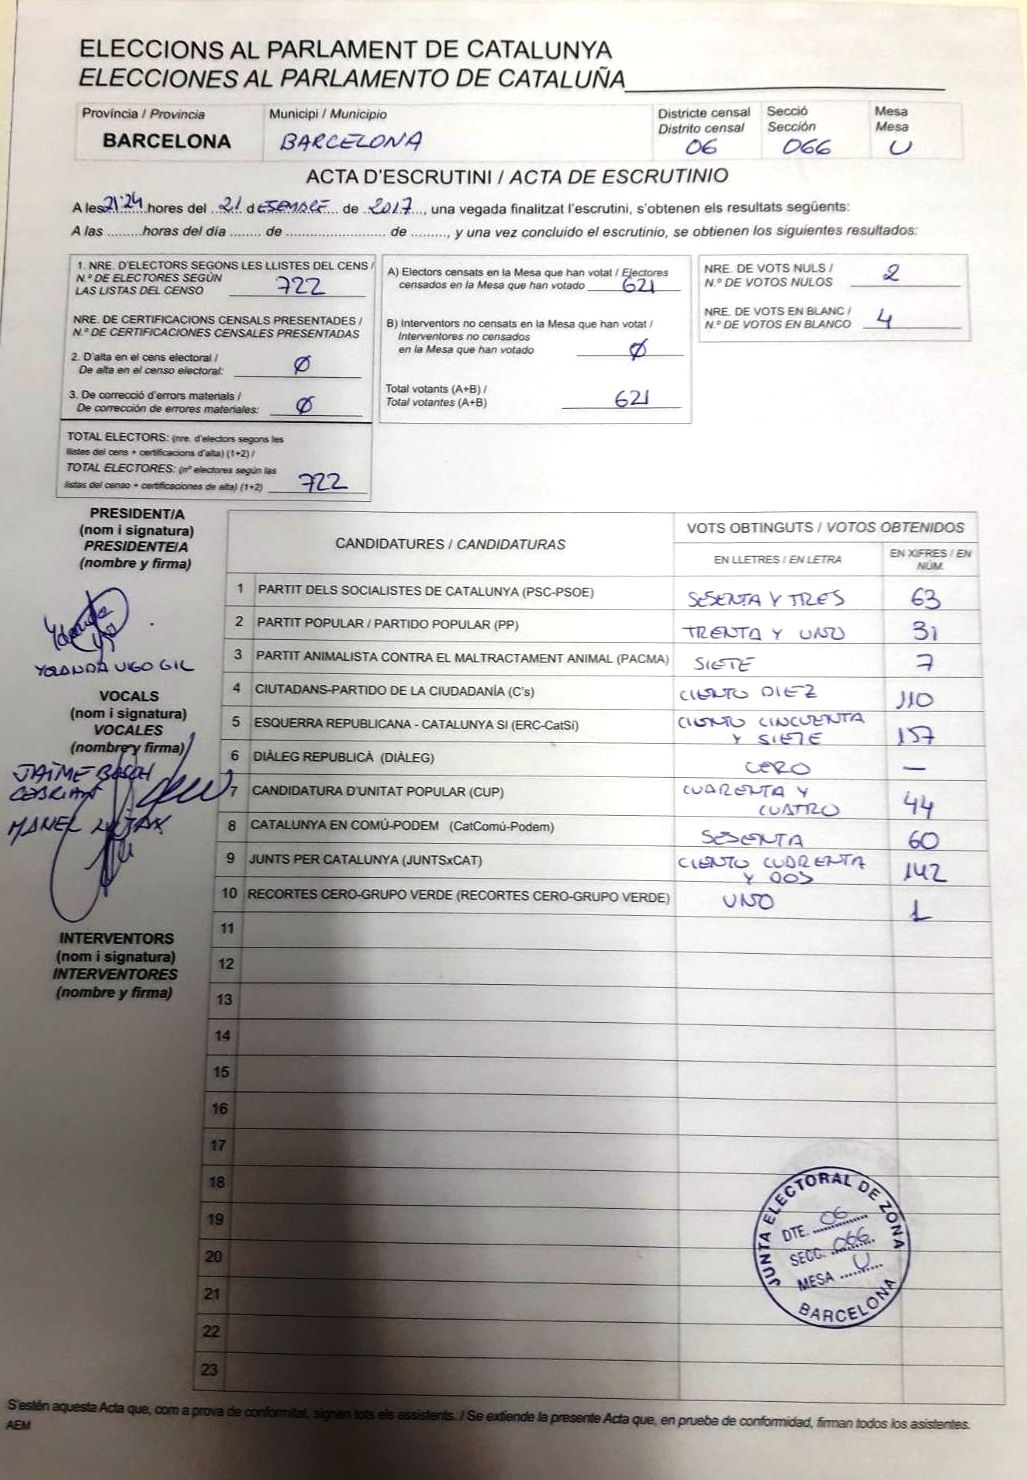 ELECCIONS AL PARLAMENT DE CATALUNYA
ELECCIONES AL PARLAMENTO DE CATALUÑA
Província / Provincia
BARCELONA
Municipi / Municipio
BARCELONA
Districte censal
Distrito censal
06
Secció
Sección
066
Mesa
Mesa
U
ACTA D'ESCRUTINI / ACTA DE ESCRUTINIO
A les 21:24 hores del 21 dESEMBRE de 2017, una vegada finalitzat l'escrutini, s'obtenen els resultats següents:
A las .........horas del día ........ de ........................... de ........., y una vez concluido el escrutinio, se obtienen los siguientes resultados:
1. NRE. D'ELECTORS SEGONS LES LLISTES DEL CENS /
N.º DE ELECTORES SEGÚN
LAS LISTAS DEL CENSO 722
NRE. DE CERTIFICACIONS CENSALS PRESENTADES /
N.º DE CERTIFICACIONES CENSALES PRESENTADAS
2. D'alta en el cens electoral /
De alta en el censo electoral: Ø
3. De correcció d'errors materials /
De corrección de errores materiales: Ø
TOTAL ELECTORS: (nre. d'electors segons les
llistes del cens + certificacions d'alta) (1+2) /
TOTAL ELECTORES: (nº electores según las
listas del censo + certificaciones de alta) (1+2) 722
A) Electors censats en la Mesa que han votat / Electores
censados en la Mesa que han votado 621
B) Interventors no censats en la Mesa que han votat /
Interventores no censados
en la Mesa que han votado Ø
Total votants (A+B) /
Total votantes (A+B) 621
NRE. DE VOTS NULS /
N.º DE VOTOS NULOS 2
NRE. DE VOTS EN BLANC /
N.º DE VOTOS EN BLANCO 4
PRESIDENT/A
(nom i signatura)
PRESIDENTE/A
(nombre y firma)
Yolanda
YOLANDA VIGO GIL
VOCALS
(nom i signatura)
VOCALES
(nombre y firma)
JAIME BOSCH
CEBRIAN
MANEL
INTERVENTORS
(nom i signatura)
INTERVENTORES
(nombre y firma)
CANDIDATURES / CANDIDATURAS
VOTS OBTINGUTS / VOTOS OBTENIDOS
EN LLETRES / EN LETRA
EN XIFRES / EN
NÚM.
1 PARTIT DELS SOCIALISTES DE CATALUNYA (PSC-PSOE) SESENTA Y TRES 63
2 PARTIT POPULAR / PARTIDO POPULAR (PP) TRENTA Y UNO 31
3 PARTIT ANIMALISTA CONTRA EL MALTRACTAMENT ANIMAL (PACMA) SIETE 7
4 CIUTADANS-PARTIDO DE LA CIUDADANÍA (C's) CIENTO DIEZ 110
5 ESQUERRA REPUBLICANA - CATALUNYA SI (ERC-CatSí) CIENTO CINCUENTA
Y SIETE 157
6 DIÀLEG REPUBLICÀ (DIÀLEG) CERO —
7 CANDIDATURA D'UNITAT POPULAR (CUP) CUARENTA Y
CUATRO 44
8 CATALUNYA EN COMÚ-PODEM (CatComú-Podem) SESENTA 60
9 JUNTS PER CATALUNYA (JUNTSxCAT) CIENTO CUARENTA
Y DOS 142
10 RECORTES CERO-GRUPO VERDE (RECORTES CERO-GRUPO VERDE) UNO 1
11
12
13
14
15
16
17
18
19
20
21
22
23
JUNTA ELECTORAL DE ZONA
DTE. 06
SECC. 066
MESA U
BARCELONA
S'estén aquesta Acta que, com a prova de conformitat, signen tots els assistents. / Se extiende la presente Acta que, en prueba de conformidad, firman todos los asistentes.
AEM